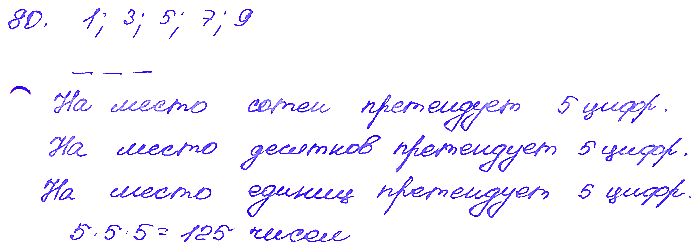 80. 1; 3; 5; 7; 9
_ _ _
На место сотен претендует 5 цифр.
На место десятков претендует 5 цифр.
На место единиц претендует 5 цифр.
5·5·5=125 чисел